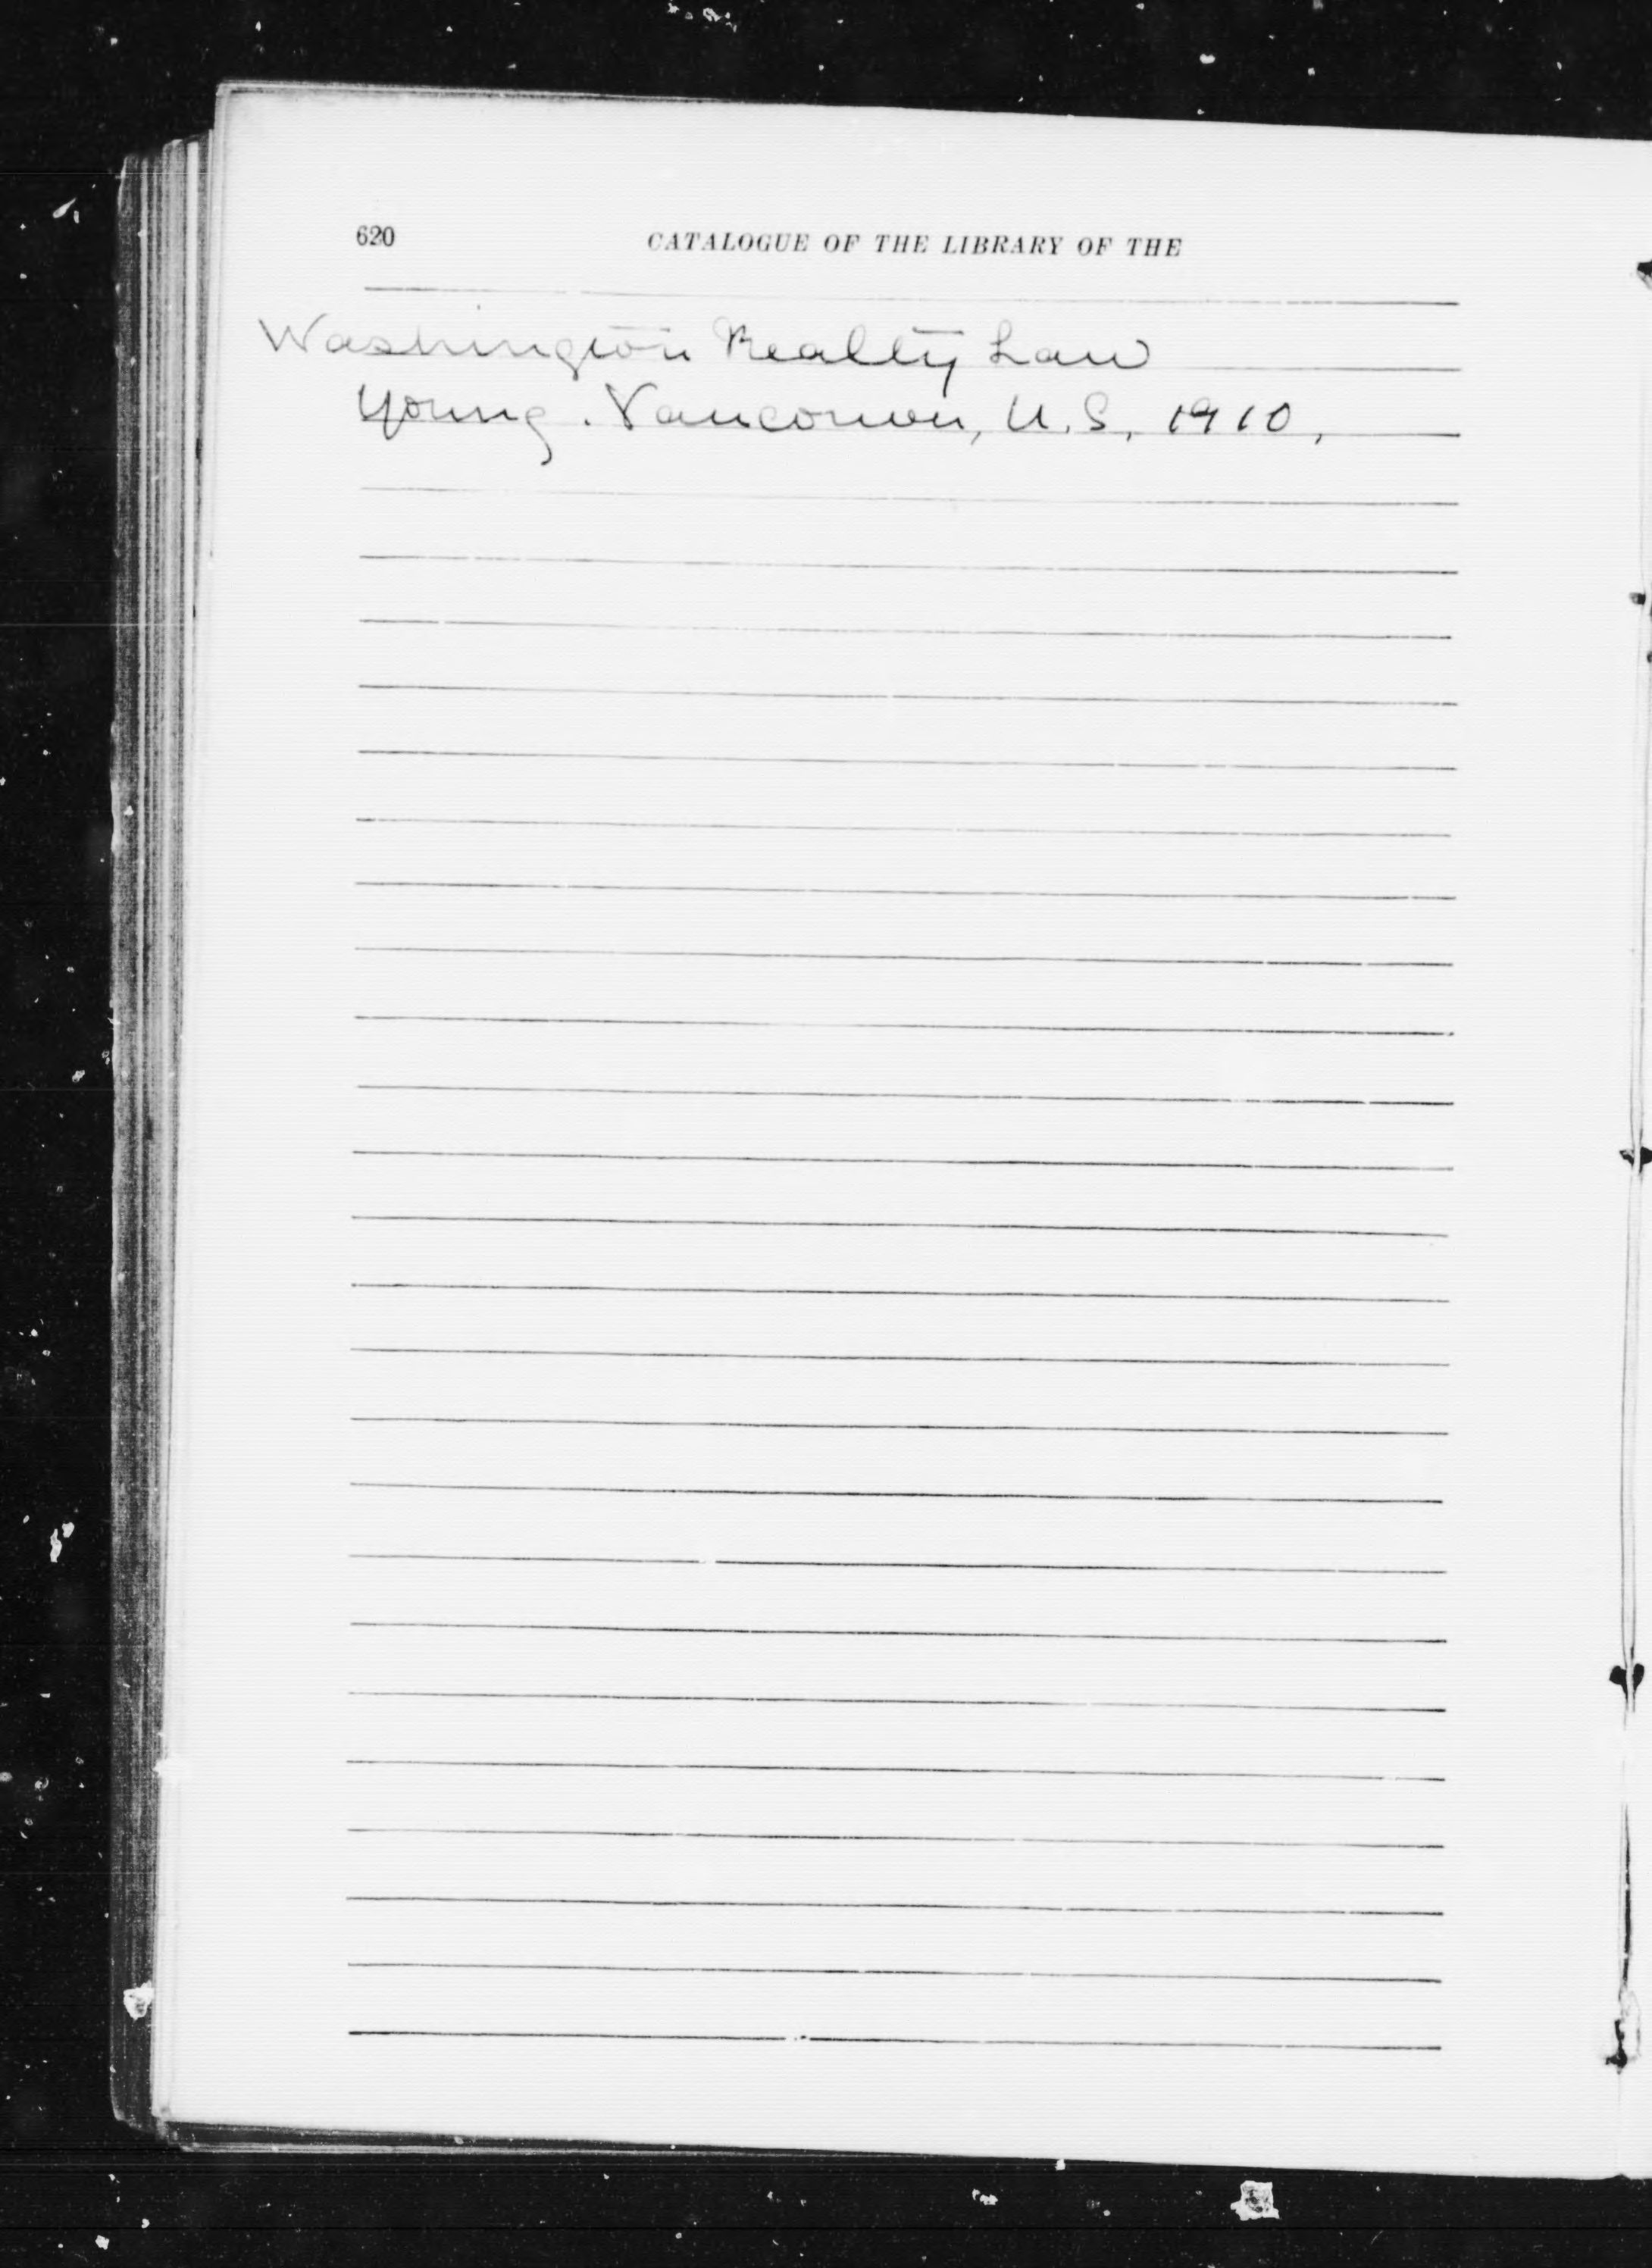 620 CATALOGUE OF THE LIBRARY OF THE
Washington Realty Law
Young. Vancouver, U.S, 1910,